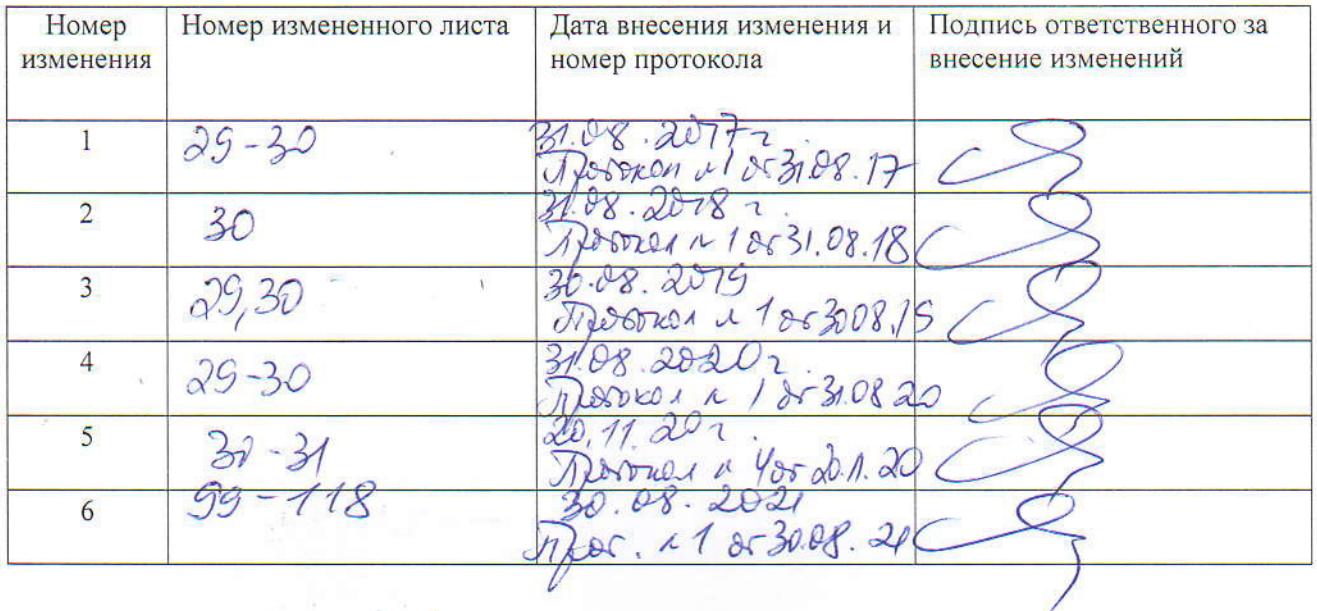 Номер изменения
Номер измененного листа
Дата внесения изменения и номер протокола
Подпись ответственного за внесение изменений
1
29-30
31.08.2017г.
Протокол №1 от 31.08.17
2
30
31.08.2018 г.
Протокол № 1 от 31.08.18
3
29,30
30.08.2019
Протокол № 1 от 30 08.19
4
29-30
31.08.2020г.
Протокол № 1 от 31.08 20
5
30-31
20.11.20г.
Протокол № 4 от 20.11.20
6
99-118
30.08.2021
Прот. №1 от 30.08.21